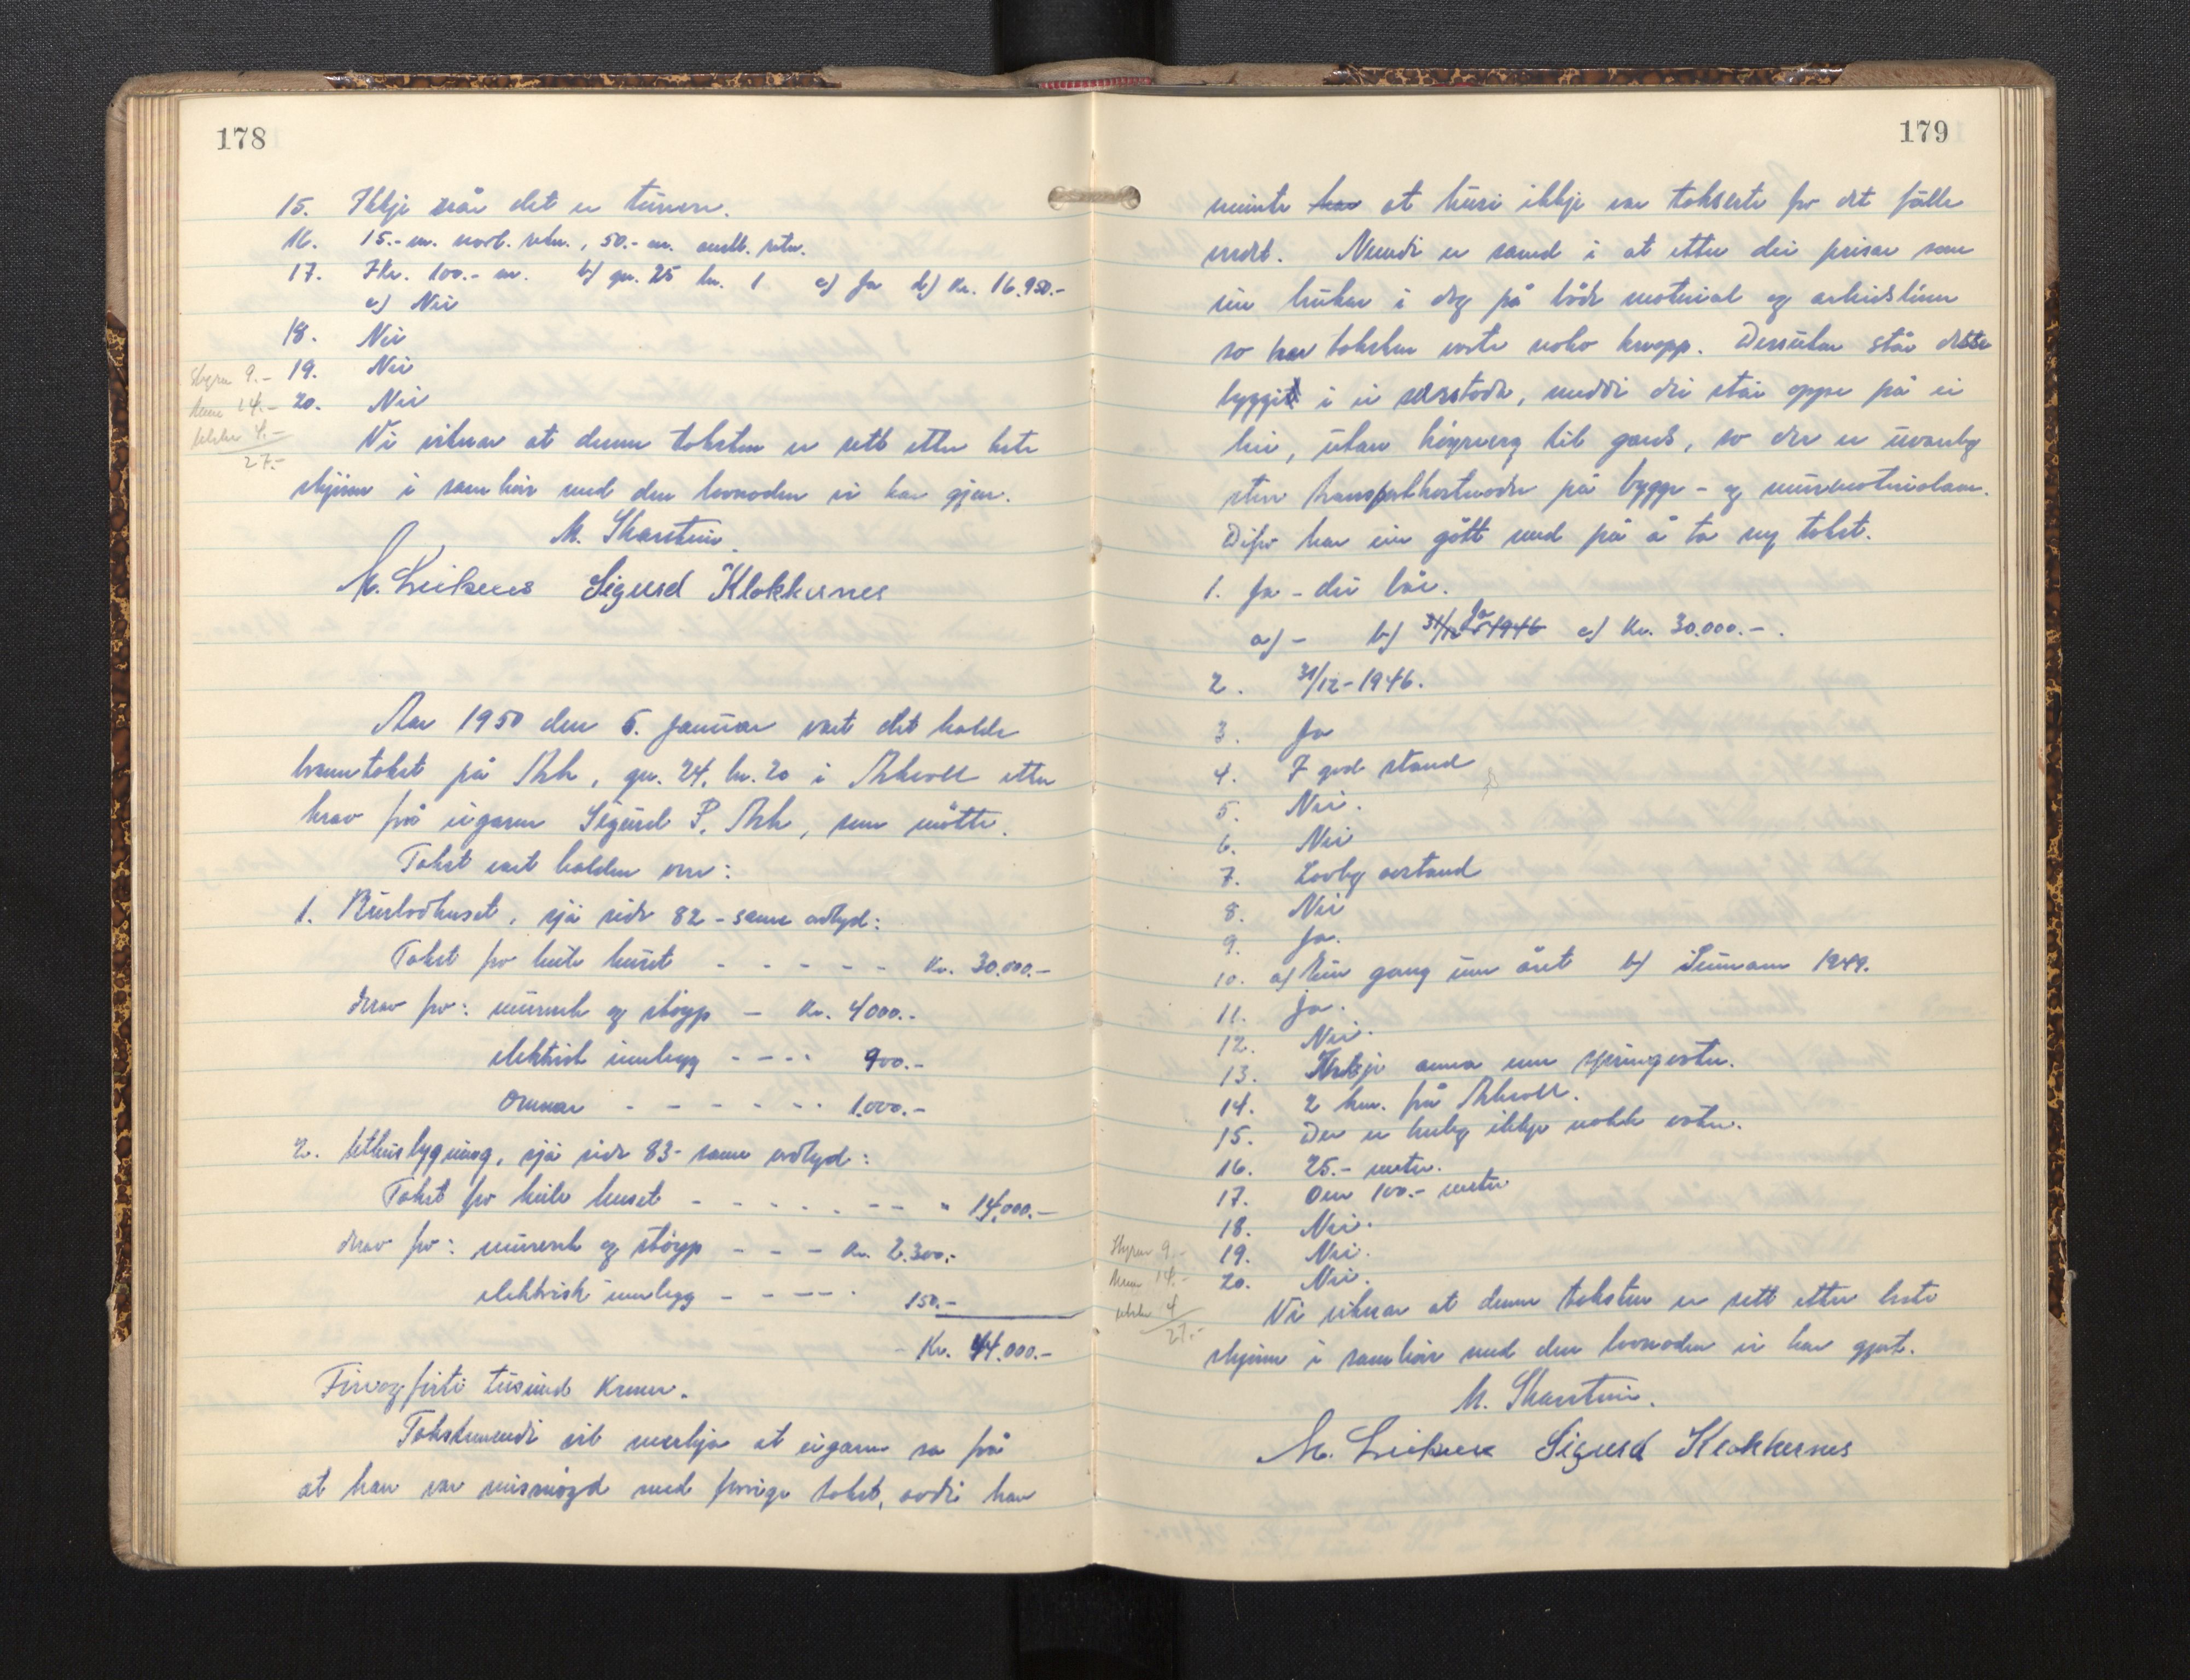 178
15. Ikkje når det er turrver.
16. 15.- m. nord. retn., 50.- m. austl. retn.
17. Ikr. 100.- m. b) gn. 25 bn. 1 c) Ja d) Kr. 16.950.-
e) Nei
18. Nei
19. Nei
20. Nei
Skyss 9.-
14.-
4.-
27.-
Vi vitnar at denne taksten er sett etter beste
skjønn i samhøve med den lovnaden vi har gjeve.
M. Skarstein.
M. Leiknes Sigurd Klokkernes
Aar 1950 den 5. Januar vart det halde
branntakst på Ask, gn. 24, bn. 20 i Askvoll etter
krav frå eigaren Sigurd P. Ask, som møtte.
Takst vart halden over:
1. Bustadhuset, sjå side 82 - same ordlyd:
Takst for heile huset - - - - - Kr. 30.000.-
Derav for: murverk og støyp - Kr. 4000.-
elektrisk innlegg - - - - 900.-
Omnar - - - - - - 1.000.-
2. Uthusbygning, sjå side 83 - same ordlyd:
Takst for heile huset - - - - - - - " 14.000.-
Derav for: murverk og støyp - - - Kr. 2.300.-
elektrisk innlegg - - - - - 150.-
- Kr. 44.000.-
Fireogfirti tusund Kroner.
Takstnemndi vil merkja at eigaren sa frå
at han var misnøgd med forrige takst, avdi han
179
meinte han at husi ikkje var takserte for det fulle
verdet. Nemndi er samd i at etter dei prisar som
ein brukar i dag på både material og arbeidsløner
so har taksten vorte noko knapp. Dessutan står desse
byggi i ei særstode, meddi dei står oppe på ei
lei, utan køyrveg til gards, so der er uvanleg
store transportkostnader på bygge- og murmaterialane.
Difor har ein gått med på å ta ny takst.
1. Ja - dei båe.
a) - b) 31/12-1946 Ja c) Kr. 30.000.-.
2. 31/12-1946.
3. Ja
4. I god stand
5. Nei.
6. Nei
7. Lovleg avstand
8. Nei
9. Ja.
10. a) Ein gang um året b) Sumaren 1949.
11. Ja.
12. Nei.
13. Ikkje anna enn springvatn.
14. 2 km. frå Askvoll.
15. Der er truleg ikkje nokk vatn.
16. 25.- meter.
17. Over 100.- meter
18. Nei.
19. Nei.
20. Nei.
Skyss 9.-
14.-
4
27.-
Vi vitnar at denne taksten er sett etter beste
skjønn i samhøve med den lovnaden vi har gjeve.
M. Skarstein.
M. Leiknes Sigurd Klokkernes